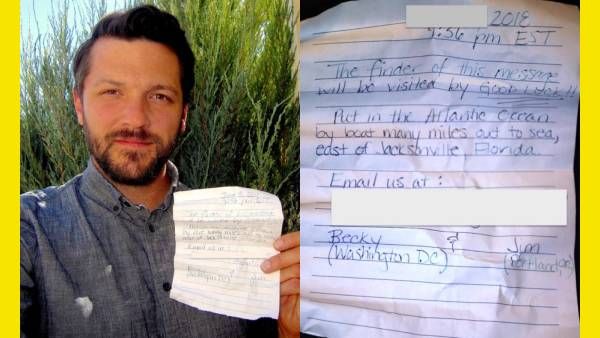 2018
pm EST
The finder of this message
will be visited by Good Luck!!
Put in the Atlantic Ocean
by boat many miles out to sea,
east of Jacksonville, Florida.
Email us at :
Becky & Jim
(Washington DC) (Portland,